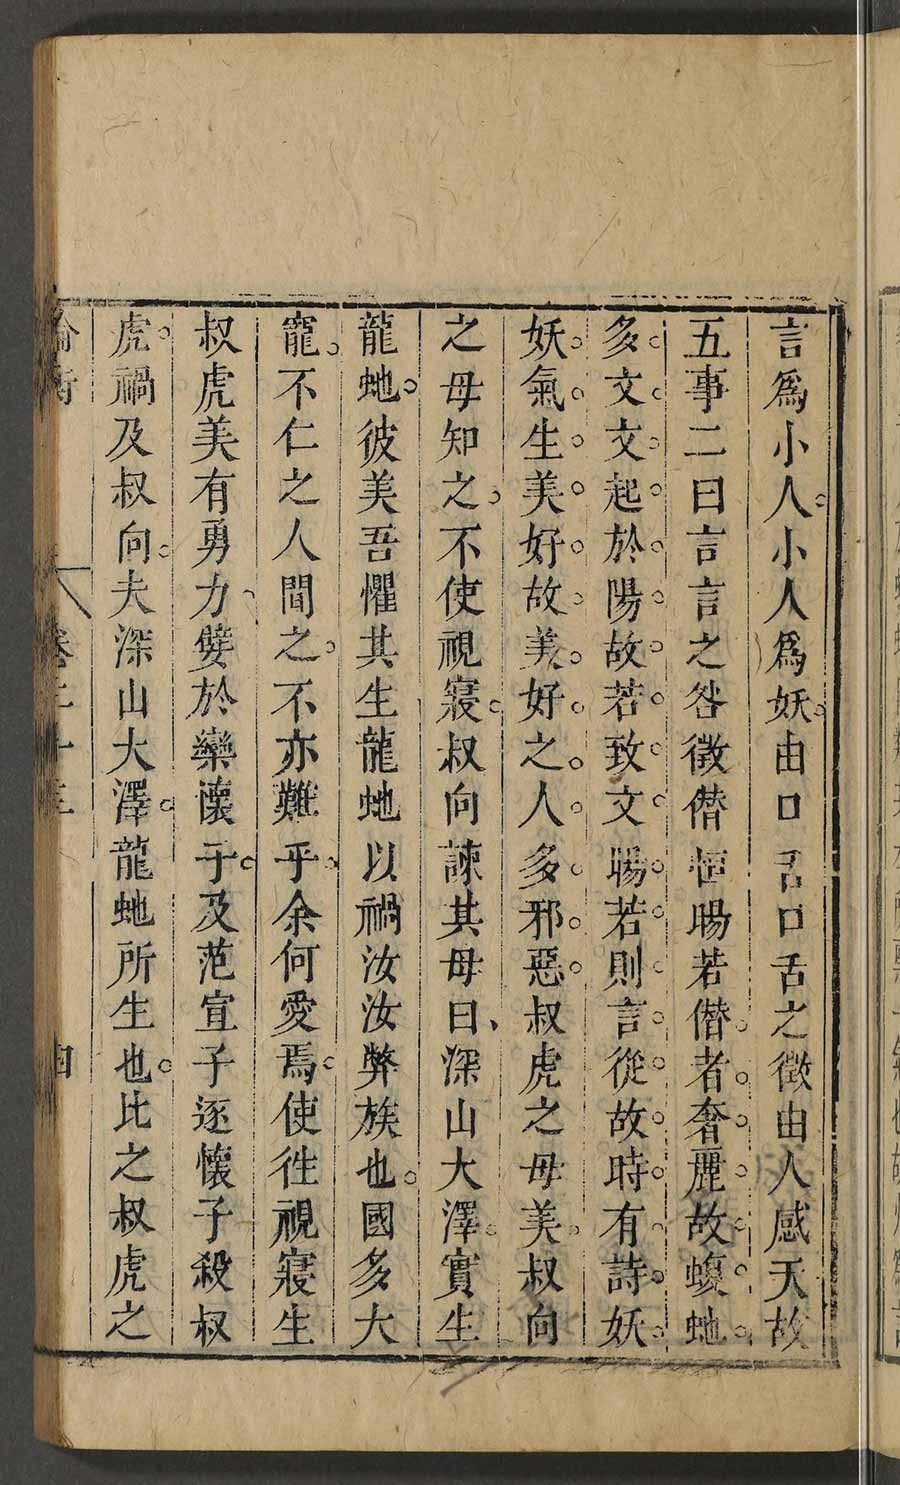 言爲小人小人爲妖由口舌口舌之徵由人感天故
五事二曰言言之咎徵僭恒暘若僭者奢麗故蝮虵
多文文起於陽故若致文暘若則言從故時有詩妖
妖氣生美好故美好之人多邪惡叔虎之母美叔向
之母知之不使視寢叔向諫其母曰深山大澤實生
龍虵彼美吾懼其生龍虵以禍汝汝弊族也國多大
寵不仁之人間之不亦難乎余何愛焉使徃視寢生
叔虎美有勇力嬖於欒懷子及范宣子逐懷子殺叔
虎禍及叔向夫深山大澤龍虵所生也比之叔虎之
論衡 卷二十三 四